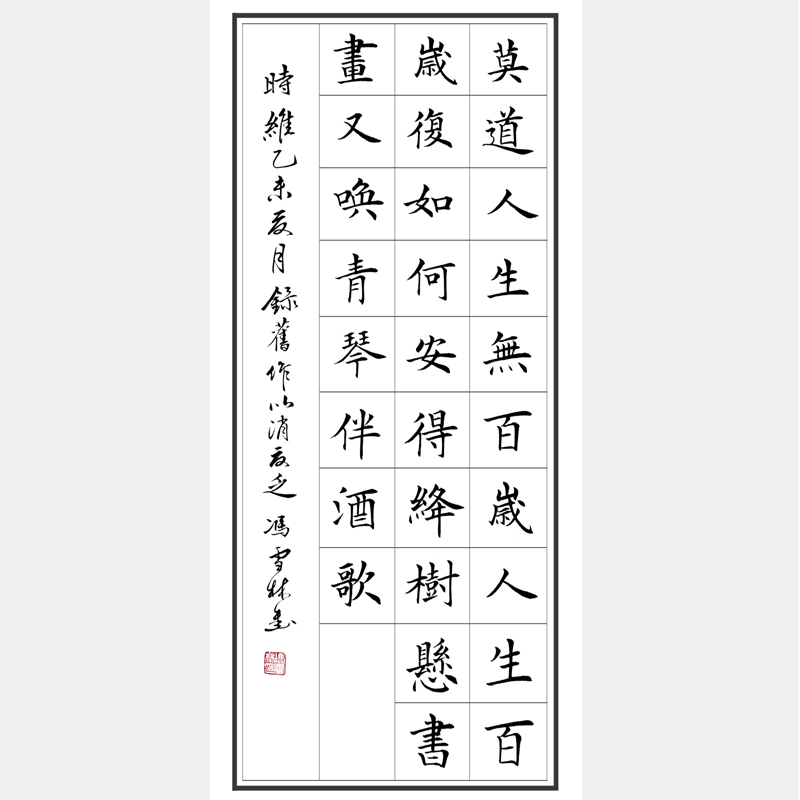 莫道人生無百歲人生百
歲復如何安得絳樹懸書
畫又喚青琴伴酒歌
時維乙未夏月錄舊作以消夏乏 馮雪林書